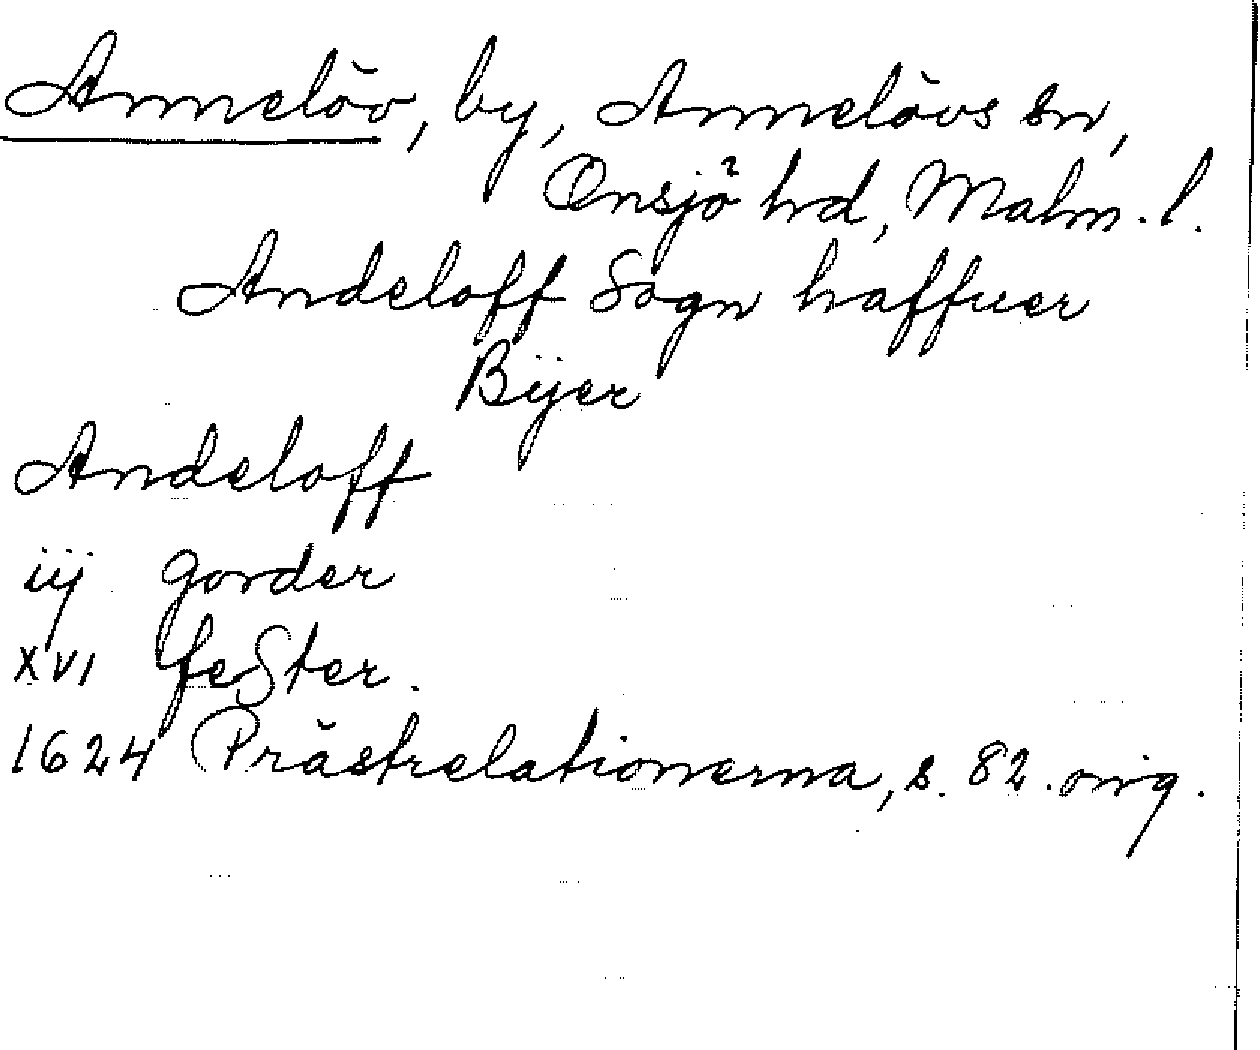 Annelöv, by, Annelövs sn,
Onsjö hd, Malm. l.
Andeloff Sogn haffuer
Bÿer
Andeloff
iij gorder
XVI fester.
1624 Prästrelationerna, s. 82. orig.